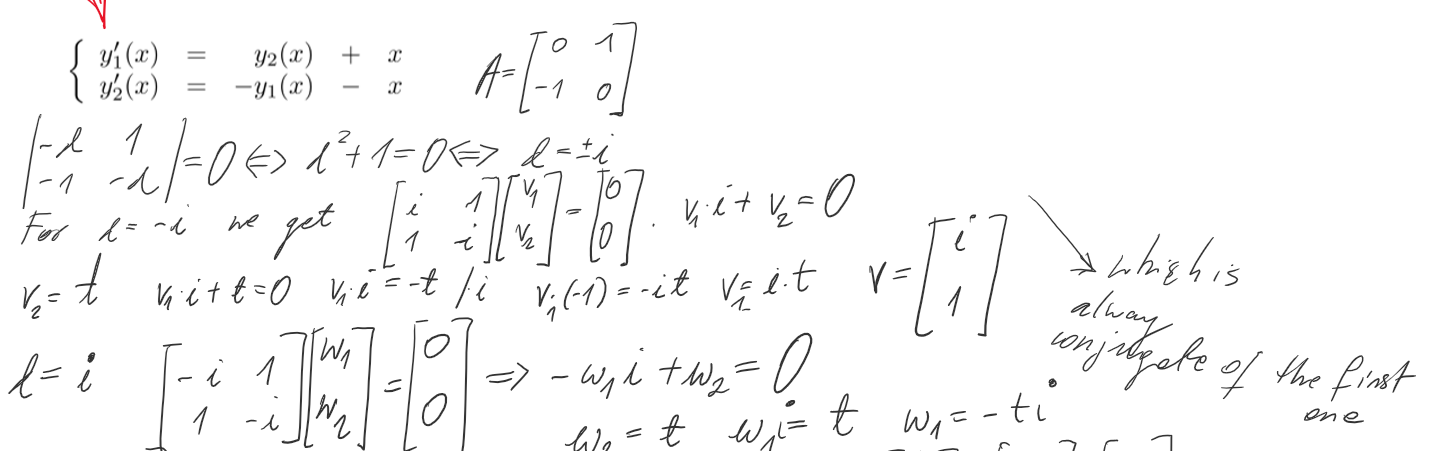 { y₁′(x) = y₂(x) + x
y₂′(x) = −y₁(x) − x
A = [0 1; -1 0]
|-λ 1; -1 -λ| = 0 ⇔ λ² + 1 = 0 ⇔ λ = ±i
For λ = -i we get [i 1; 1 i][v₁; v₂] = [0; 0]. v₁·i + v₂ = 0
v₂ = t v₁·i + t = 0 v₁·i = -t /·i v₁·(-1) = -it v₁ = i·t v = [i; 1]
which is
alway
conjugate of the first
one
λ = i [-i 1; 1 -i][w₁; w₂] = [0; 0] ⇒ -w₁i + w₂ = 0
w₂ = t w₁i = t w₁ = -ti